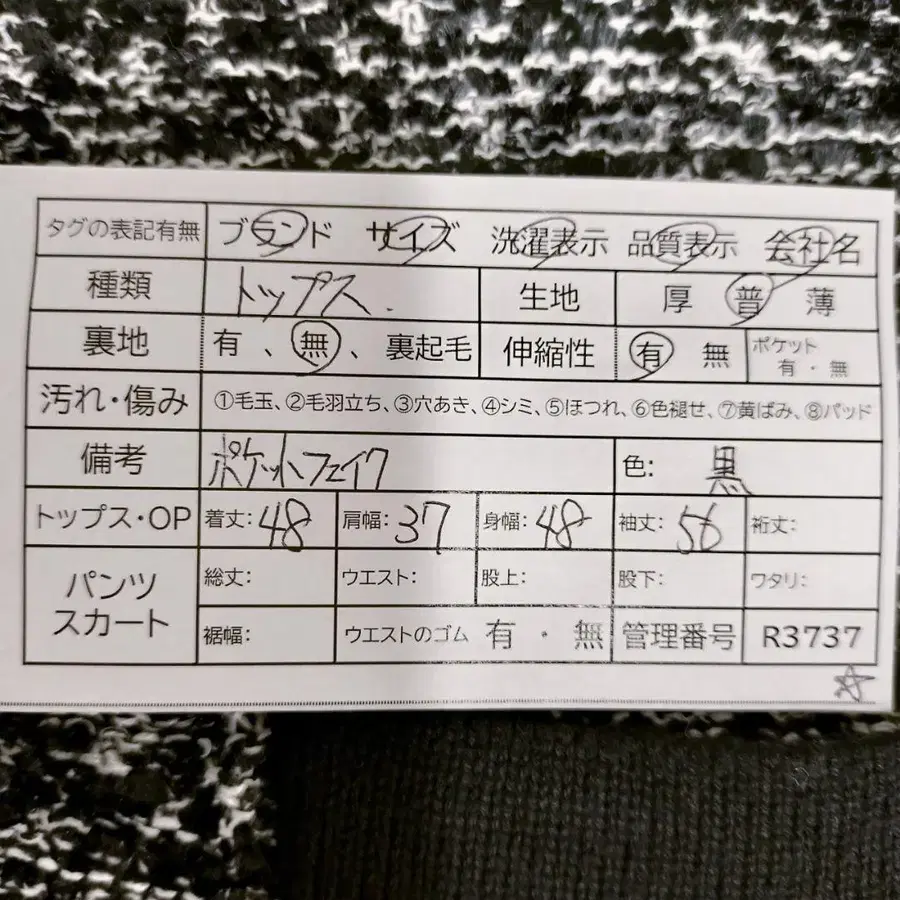 タグの表記有無 ブランド サイズ 洗濯表示 品質表示 会社名
種類 トップス. 生地 厚 普 薄
裏地 有 、 無 、 裏起毛 伸縮性 有 無 ポケット 有 ・ 無
汚れ・傷み ①毛玉、②毛羽立ち、③穴あき、④シミ、⑤ほつれ、⑥色褪せ、⑦黄ばみ、⑧パッド
備考 ポケットフェイク 色: 黒
トップス・OP 着丈: 48 肩幅: 37 身幅: 48 袖丈: 56 裄丈:
パンツ スカート 総丈: ウエスト: 股上: 股下: ワタリ:
裾幅: ウエストのゴム 有 ・ 無 管理番号 R3737